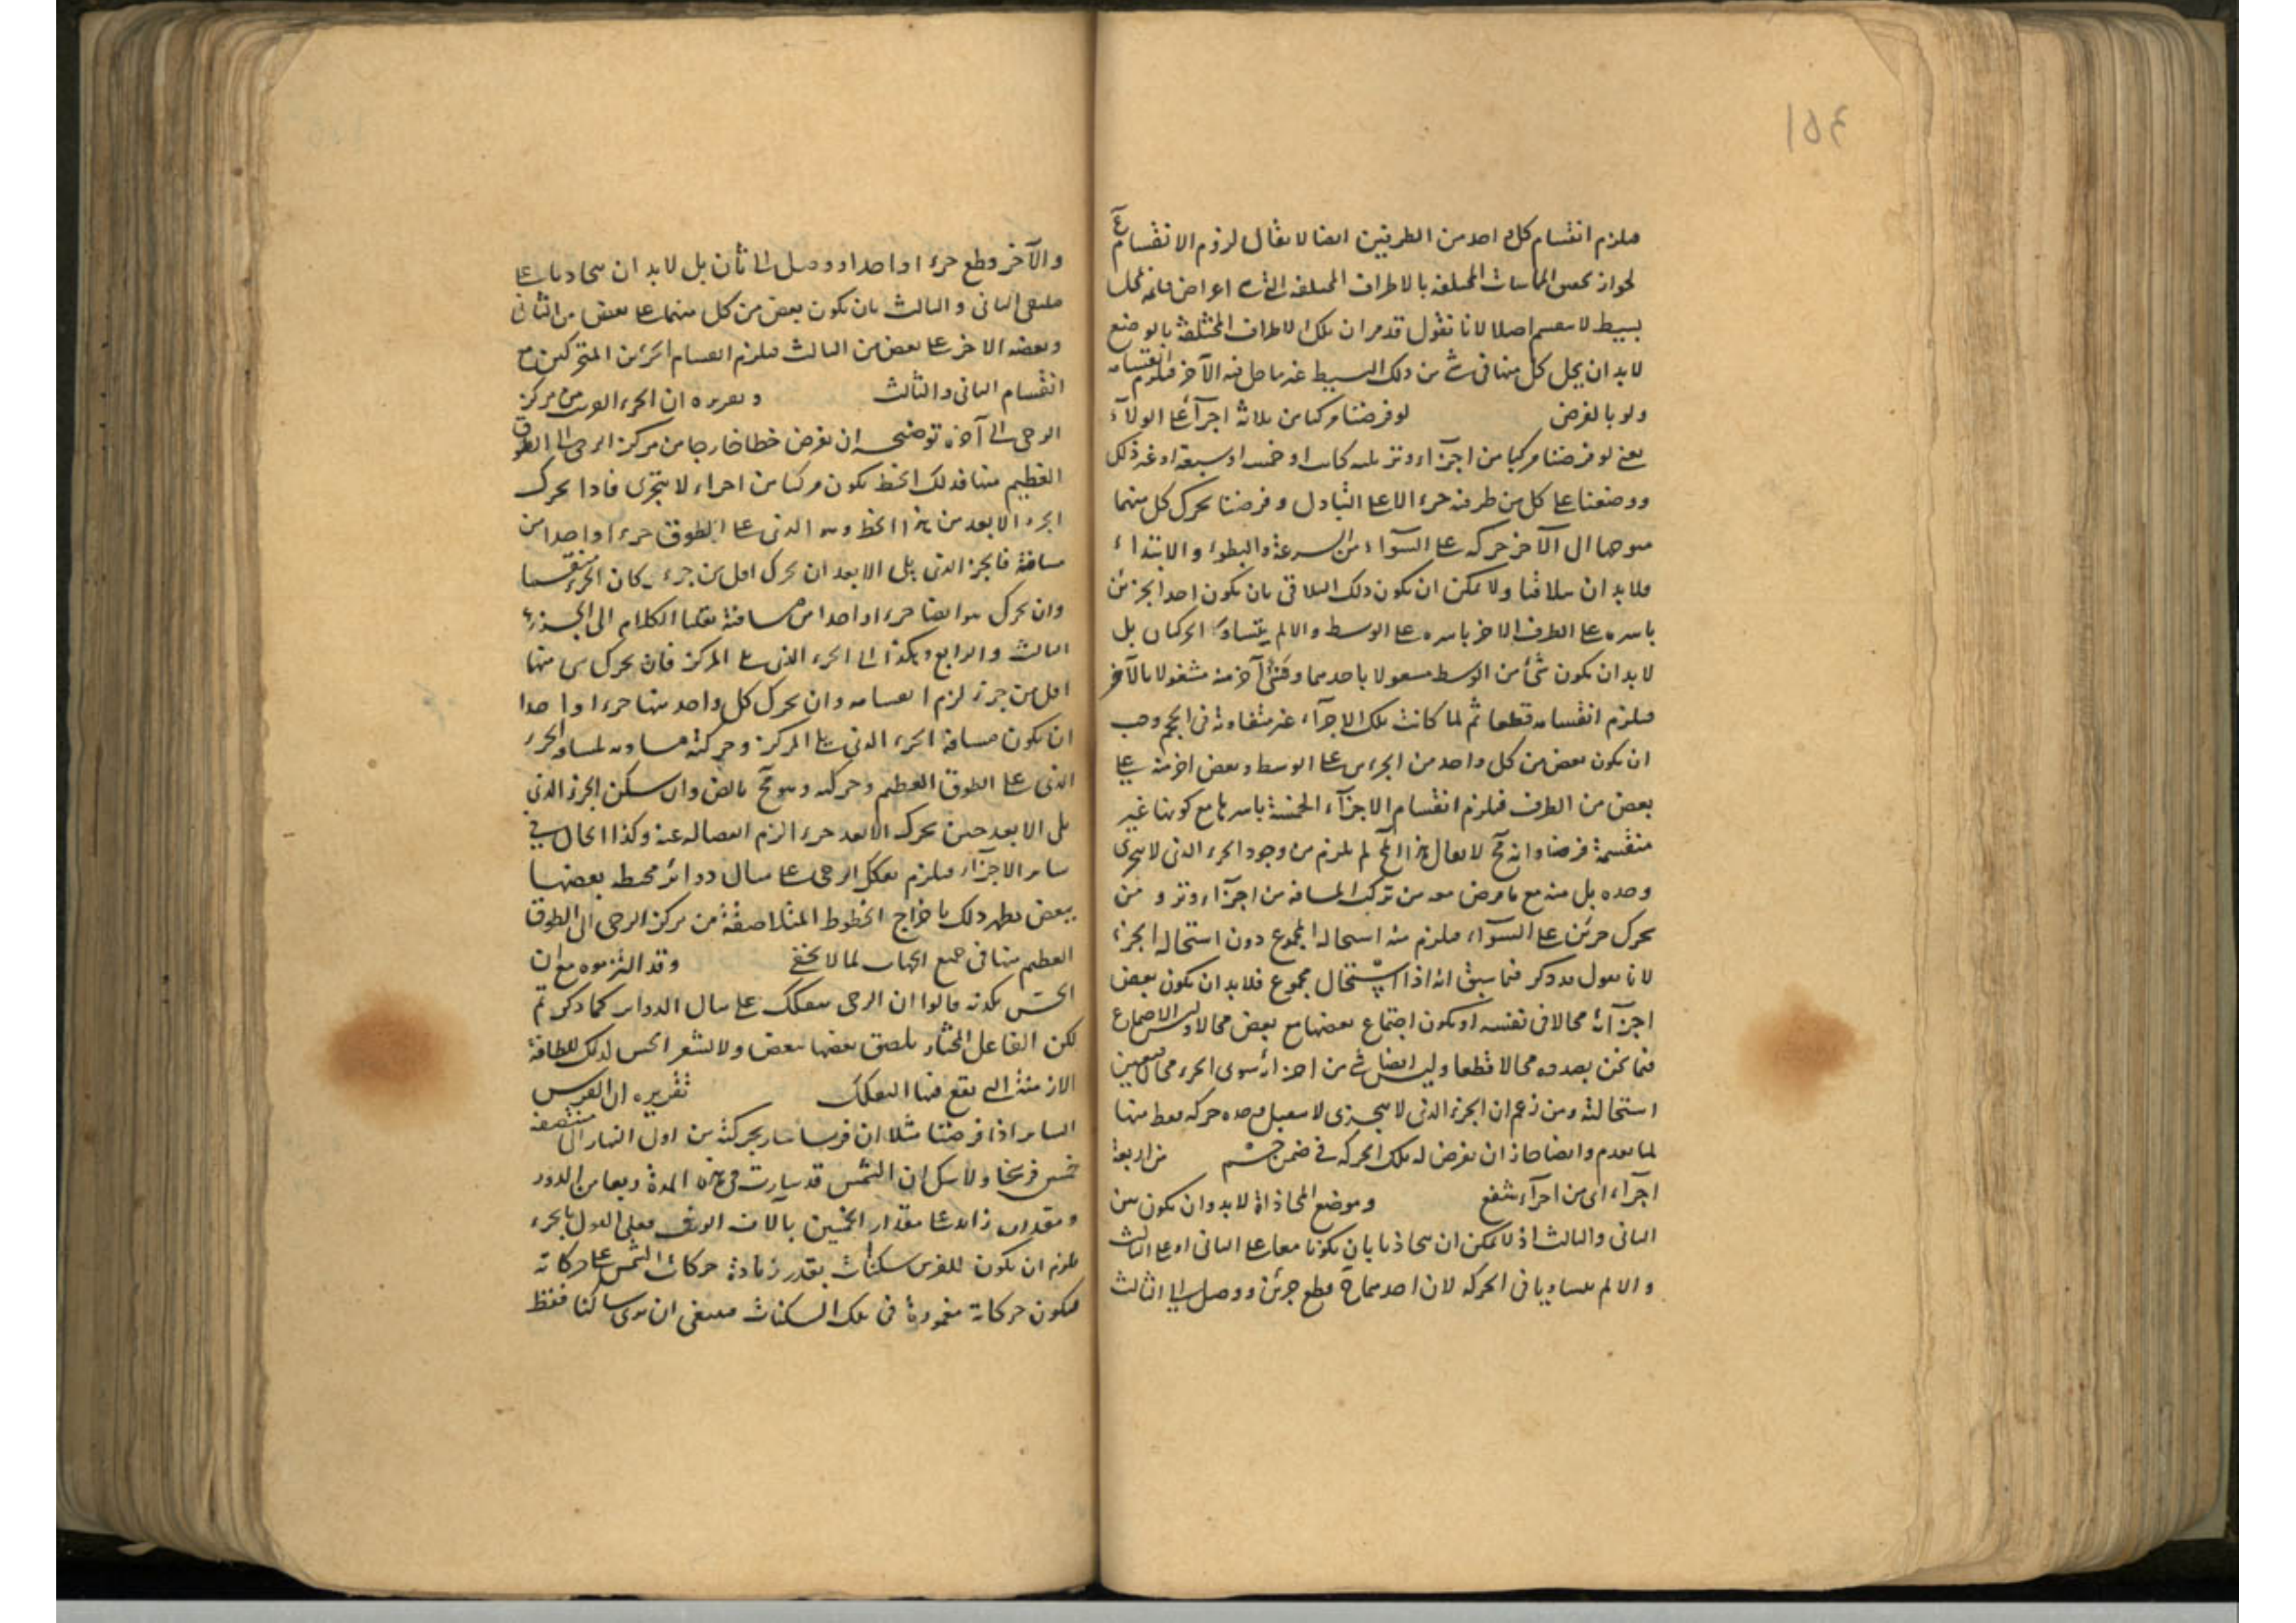 ١٥٤
فيلزم انقسام كل واحد من الطرفين ايضا لا يقال لزوم الانقسام مم
لجواز تخصص المماسات المختلفة بالاطراف المختلفة التى هى اعراض قائمة بمحل
بسيط لا ينقسم اصلا لانا نقول قد مر ان تلك الاطراف المختلفة بالوضع
لابد ان يحل كل منها فى شئ من ذلك البسيط غير ما حل فيه الآخر فيلزم انقسامه
ولو بالفرض لو فرضنا مركبا من ثلاثة اجزآء على الولآء
يعنى لو فرضنا مركبا من اجزآء وتر ثلثة كانت او خمسة او سبعة او غير ذلك
ووضعنا على كل من طرفيه جزءا لا على التبادل وفرضنا تحرك كل منهما
متوجها الى الآخر حركة على السوآء من السرعة والبطوء والابتداء
فلابد ان يتلاقيا ولا يمكن ان يكون ذلك التلاقى بان يكون احد الجزئين
باسره على الطرف والاخر باسره على الوسط والا لم يتساو الحركتان بل
لابد ان يكون شئ من الوسط مشغولا باحدهما وشئ آخر منه مشغولا بالآخر
فيلزم انقسامه قطعا ثم لما كانت تلك الاجزآء غير متفاوتة فى الحجم وجب
ان يكون بعض من كل واحد من الجزءين على الوسط وبعض اخر منه على
بعض من الطرف فيلزم انقسام الاجزآء الخمسة باسرها مع كونها غير
منقسمة فرضا وانه مح لا يقال هذا المح لم يلزم من وجود الجزء الذى لا يتجزى
وحده بل منه مع ما فرض معه من تركب المسافة من اجزآء وتر و من
تحرك جزئين على السوآء فيلزم منه استحالة المجموع دون استحالة الجزء
لانا نقول قد ذكر فيما سبق انه اذا استحال مجموع فلابد ان يكون بعض
اجزآئه محالا فى نفسه او يكون اجتماع بعضها مع بعض محالا وليس الاجتماع
فيما نحن بصدده محالا قطعا وليس ايضا شئ من اجزائه سوى الجزء محالا فتعين
استحالته ومن زعم ان الجزء الذى لا يتجزى لا يقبل وحده حركة فقط منها
لما تقدم وايضا جاز ان نفرض له تلك الحركة فى ضمن جسم من اربعة
اجزآء اى من اجزآء شفع وموضع المحاذاة لابد وان يكون بين
الثانى والثالث اذ لا يمكن ان يتحاذيا بان يكونا معا على الثانى او على الثالث
والا لم يتساويا فى الحركة لان احدهما ح قطع جزئين ووصل الى الثالث
والآخر قطع جزءا واحدا ووصل الى ثان بل لابد ان يتحاذيا على
ملتقى الثانى والثالث بان يكون بعض من كل منهما على بعض من الثانى
وبعضه الاخر على بعض من الثالث فيلزم انقسام الجزئين المتحركين مع
انقسام الثانى والثالث وتقريره ان الجزء القريب من مركز
الرحى الى آخره توضيحه ان نفرض خطا خارجا من مركز الرحى الى الطوق
العظيم منها فذلك الخط يكون مركبا من اجزاء لا يتجزى فاذا تحرك
الجزء الابعد من هذا الخط وهو الذى على الطوق جزءا واحدا من
مسافة فالجزء الذى يلى الابعد ان تحرك اقل من جزء كان الجزء منقسما
وان تحرك هو ايضا جزءا واحدا من مسافته نقلنا الكلام الى الجزء
الثالث والرابع وهكذا الى الجزء الذى على المركز فان تحرك شئ منها
اقل من جزء لزم انقسامه وان تحرك كل واحد منها جزءا واحدا
ان يكون مسافة الجزء الذى يلى المركز وحركته مساوية لمسافة الجزء
الذى على الطوق العظيم وحركته وهو مح بالضرورة وان سكن الجزء الذى
يلى الابعد حين تحرك الابعد جزءا لزم انفصاله عنه وكذا الحال فى
سائر الاجزآء فيلزم تفكك الرحى على مثال دوائر محيط بعضها
ببعض يظهر ذلك باخراج الخطوط المتلاصقة من مركز الرحى الى الطوق
العظيم منها فى جميع الجهات لما لا يخفى وقد التزموه مع ان
الحس يكذبه قالوا ان الرحى يتفكك على مثال الدوائر كما ذكرتم
لكن الفاعل المختار يلصق بعضها ببعض ولا يشعر الحس لذلك للطافة
الازمنة التى يقع فيها التفكك تقريره ان الفرس
السائر اذا فرضنا مثلا ان فرسا سار بحركته من اول النهار الى منتصفه
خمسين فرسخا ولا شك ان الشمس قد سارت فى هذه المدة ربعا من الدور
ومقداره زائد على مقدار الخمسين بآلاف الوف فعلى القول بالجزء
يلزم ان يكون للفرس سكنات بقدر زيادة حركات الشمس على حركاته
فيكون حركاته مغمورة فى تلك السكنات فينبغى ان يرى ساكنا فقط